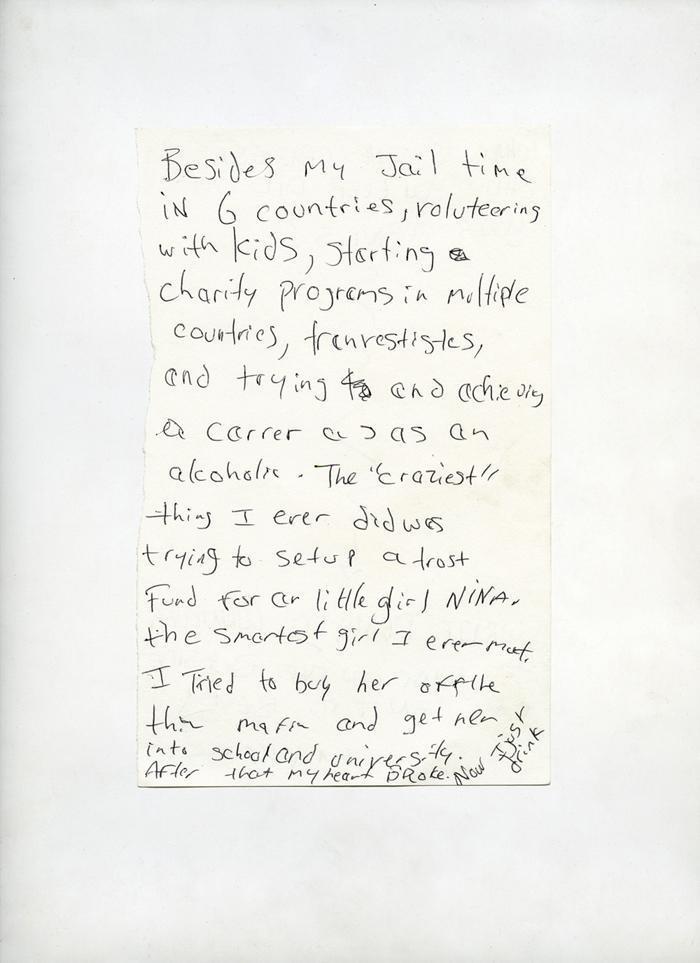 Besides my Jail time
in 6 countries, voluteering
with kids, starting
charity programs in multiple
countries, tranvestistes,
and trying to and achieving
a carrer as as an
alcoholic. The "craziest"
thing I ever did was
trying to setup a trost
Fund for ar little girl NINA.
the smartest girl I ever met.
I Tried to buy her off the
thi mafia and get her
into school and university.
After that my heart BRoke. Now I just
drink